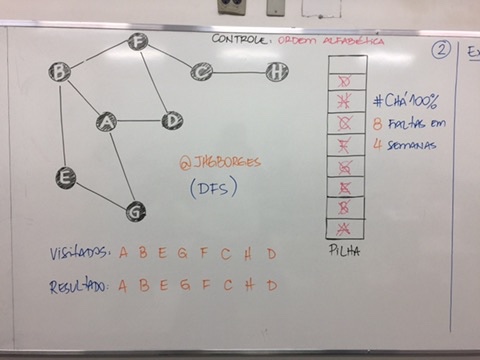 CONTROLE: ORDEM ALFABÉTICA
2
Ex
F
B
C
H
A
D
E
G
@JHGBORGES
(DFS)
D
H
C
F
G
E
B
A
PILHA
#CHÁ100%
8 FALTAS EM
4 SEMANAS
VISITADOS: A B E G F C H D
RESULTADO: A B E G F C H D